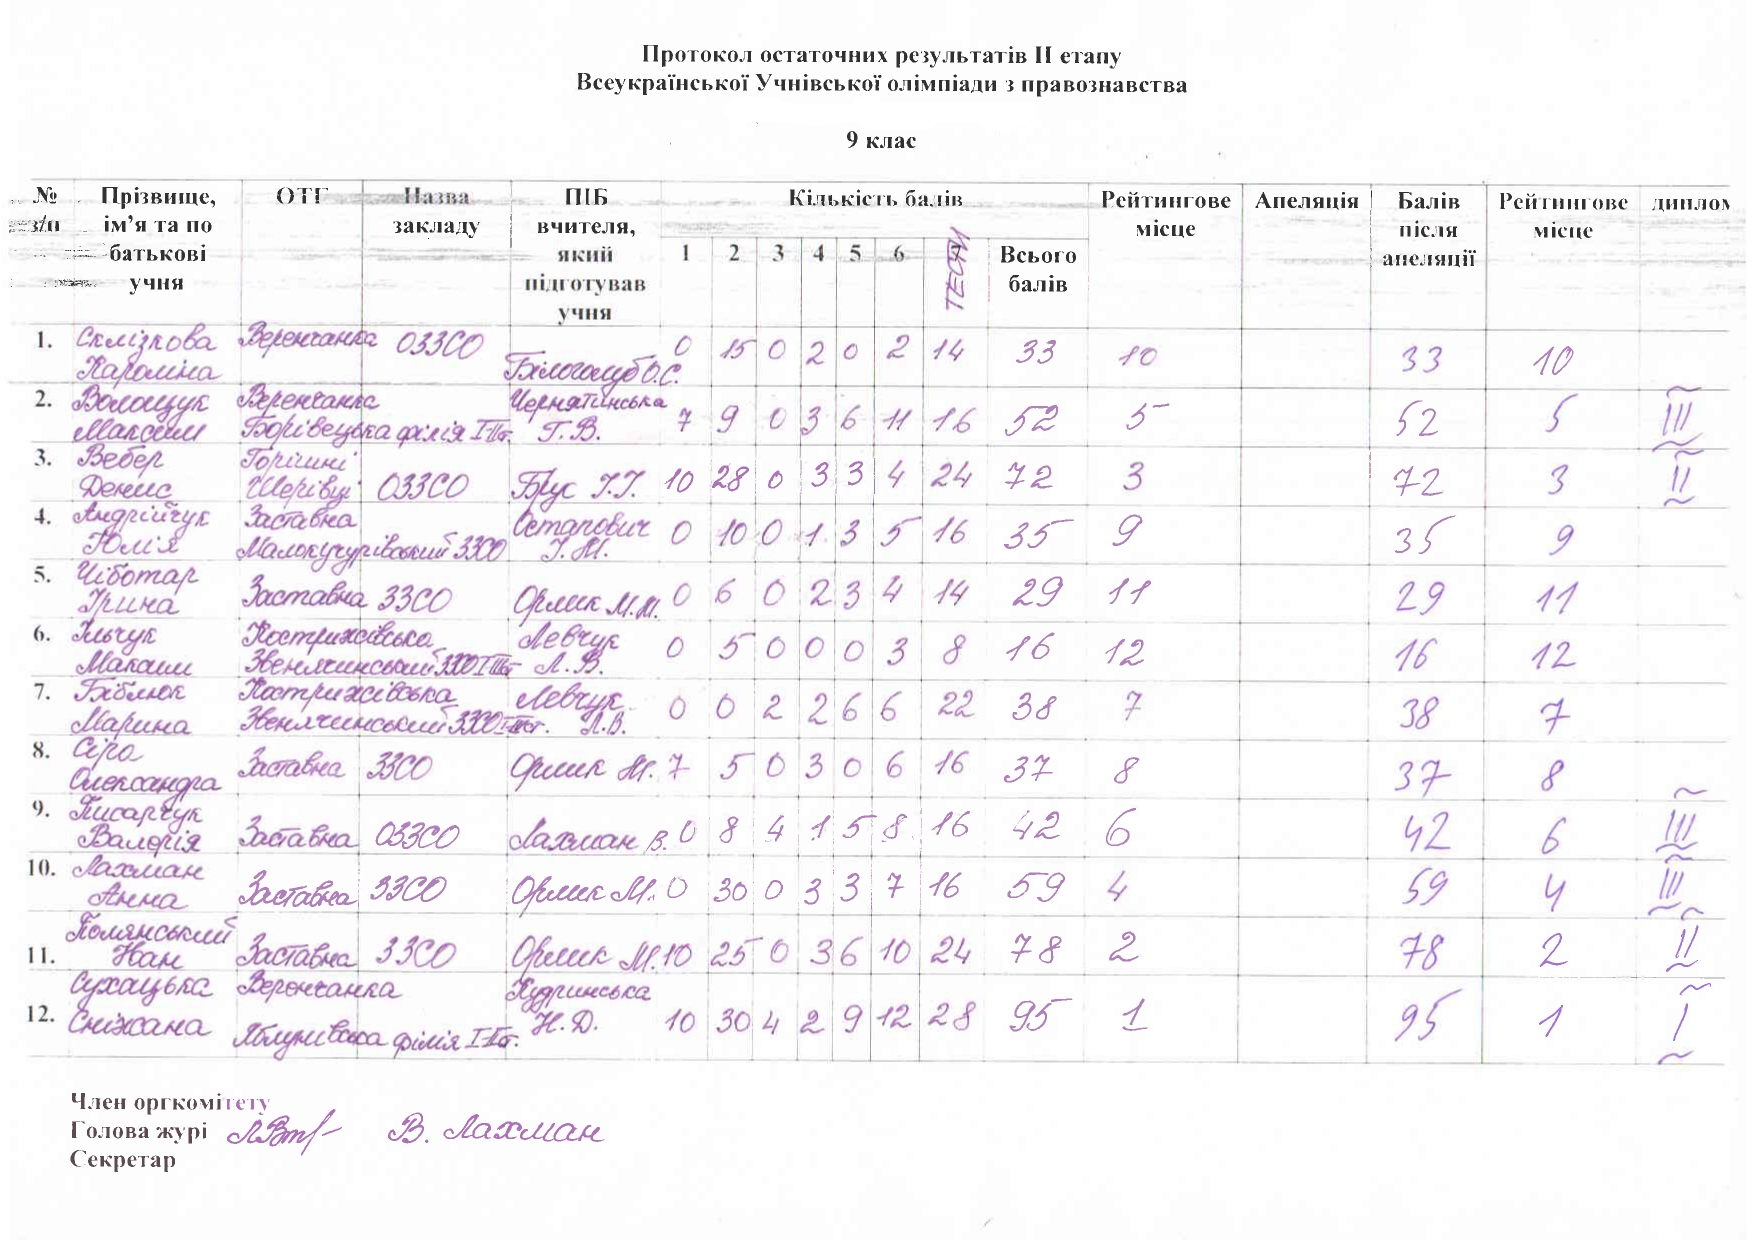 Протокол остаточних результатів ІІ етапу
Всеукраїнської Учнівської олімпіади з правознавства
9 клас
№ з/п Прізвище, ім’я та по батькові учня ОТГ Назва закладу ПІБ вчителя, який підготував учня Кількість балів 1 2 3 4 5 6 ТЕСТИ Всього балів Рейтингове місце Апеляція Балів після апеляції Рейтингове місце диплом
1. Склізкова Кароліна Веренчанка ОЗЗСО Білоголуб О.С. 0 15 0 2 0 2 14 33 10 33 10
2. Волощук Максим Веренчанка Борівецька філія І-ІІст. Чернятинська Г.В. 7 9 0 3 6 11 16 52 5 52 5 ІІІ
3. Вебер Денис Горішні Шерівці ОЗЗСО Брус Г.Г. 10 28 0 3 3 4 24 72 3 72 3 ІІ
4. Андрійчук Юлія Заставна Малокучурівський ЗЗСО Остапович І.М. 0 10 0 1 3 5 16 35 9 35 9
5. Чіботар Ірина Заставна ЗЗСО Орлик М.М. 0 6 0 2 3 4 14 29 11 29 11
6. Ільчук Максим Кострижівська Звенячинський ЗЗСО І-ІІІст Левчук Л.В. 0 5 0 0 0 3 8 16 12 16 12
7. Біблюк Марина Кострижівська Звенячинський ЗЗСО І-ІІІст. Левчук Л.В. 0 0 2 2 6 6 22 38 7 38 7
8. Сіра Олександра Заставна ЗЗСО Орлик М. 7 5 0 3 0 6 16 37 8 37 8
9. Писарчук Валерія Заставна ОЗЗСО Лахман В. 0 8 4 1 5 8 16 42 6 42 6 ІІІ
10. Лахман Анна Заставна ЗЗСО Орлик М. 0 30 0 3 3 7 16 59 4 59 4 ІІІ
11. Полянський Іван Заставна ЗЗСО Орлик М. 10 25 0 3 6 10 24 78 2 78 2 ІІ
12. Сухацька Сніжана Веренчанка Яблунівська філія І-ІІст. Кудринська Н.Д. 10 30 4 2 9 12 28 95 1 95 1 І
Член оргкомітету
Голова журі В. Лахман
Секретар